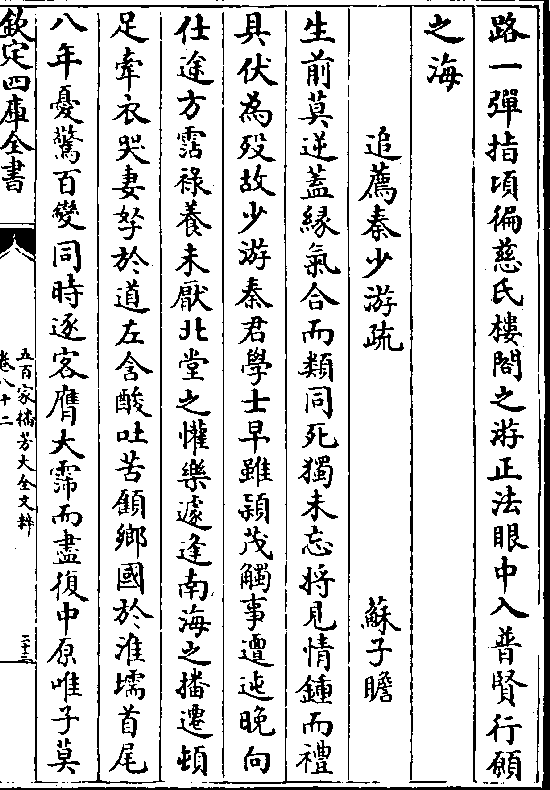 路一彈指頃徧慈氏樓閣之游正法眼中入普賢行願
之海
追薦秦少游疏
蘇子瞻
生前莫逆蓋緣氣合而類同死獨未忘將見情鍾而禮
具伏為歿故少游秦君學士早雖穎茂觸事遭迍晚向
仕途方霑禄養未厭北堂之懽樂遽逢南海之播遷頓
足牽衣哭妻孥於道左含酸吐苦顧鄉國於淮壖首尾
八年憂驚百變同時逐客膺大霈而盡復中原唯子莫
欽定四庫全書
五百家播芳大全文粹
卷八十二
二十三